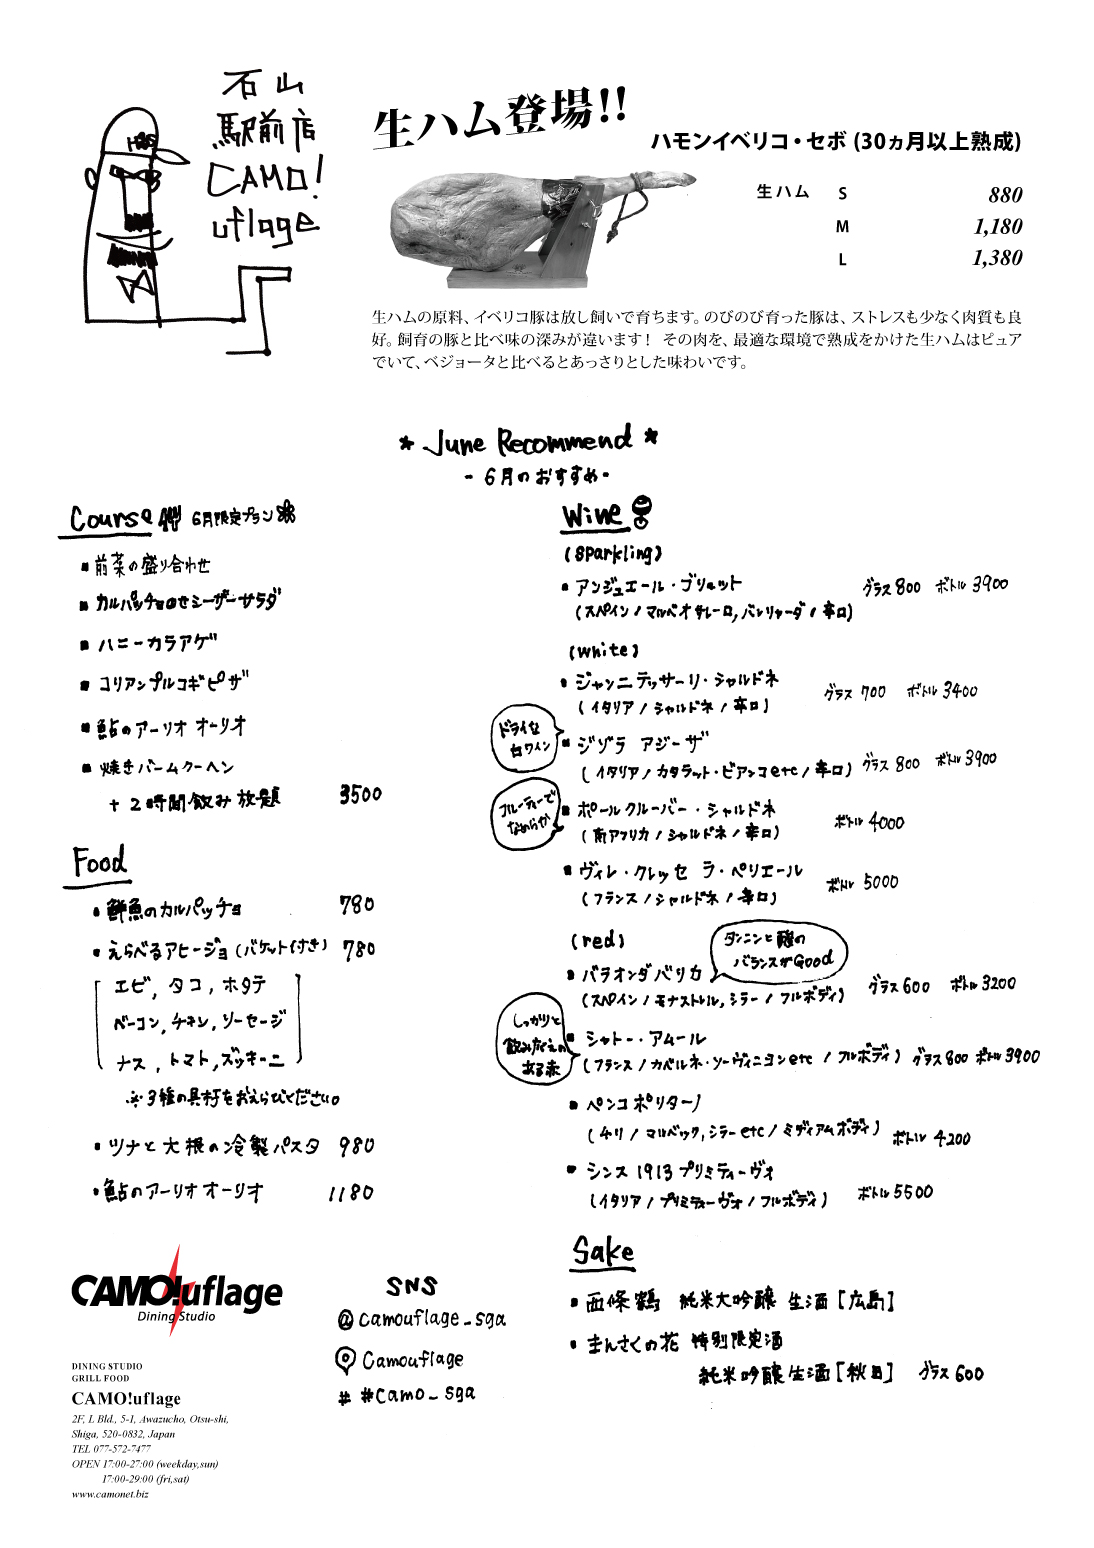 石山
駅前店
CAMO!
uflage
生ハム登場!!
ハモンイベリコ・セボ (30ヵ月以上熟成)
生ハム S 880
M 1,180
L 1,380
生ハムの原料、イベリコ豚は放し飼いで育ちます。のびのび育った豚は、ストレスも少なく肉質も良
好。飼育の豚と比べ味の深みが違います！ その肉を、最適な環境で熟成をかけた生ハムはピュア
でいて、ベジョータと比べるとあっさりとした味わいです。
* June Recommend *
- 6月のおすすめ -
Course 6月限定プラン
・前菜の盛り合わせ
・カルパッチョのせシーザーサラダ
・ハニーカラアゲ
・コリアンプルコギピザ
・鮎のアーリオ オーリオ
・焼きバームクーヘン
+ 2時間飲み放題 3500
Food
・鮮魚のカルパッチョ 780
・えらべるアヒージョ(バケット付き) 780
エビ, タコ, ホタテ
ベーコン, チキン, ソーセージ
ナス, トマト, ズッキーニ
※3種の具材をおえらびください
・ツナと大根の冷製パスタ 980
・鮎のアーリオオーリオ 1180
Wine
(Sparkling)
・アンジュエール・ブリュット グラス800 ボトル3900
(スペイン / 辛口)
(white)
・ジャンニテッサーリ・シャルドネ グラス700 ボトル3400
(イタリア / シャルドネ / 辛口)
ドライな
白ワイン
・ジゾラ アジーザ グラス800 ボトル3900
(イタリア / カタラット・ビアンコetc / 辛口)
フルーティーで
なめらか
・ポールクルーバー・シャルドネ ボトル4000
(南アフリカ / シャルドネ / 辛口)
・ヴィレ・クレッセ ラ・ペリエール ボトル5000
(フランス / シャルドネ / 辛口)
(red)
タンニンと酸の
バランスがGood
・バラオンダバリカ グラス600 ボトル3200
(スペイン / モナストレル, シラー / フルボディ)
しっかりと
飲みごたえの
ある赤
・シャトー・アムール
(フランス / カベルネ・ソーヴィニヨンetc / フルボディ) グラス800 ボトル3900
・ペンコポリターノ
(チリ / マルベック, シラーetc / ミディアムボディ) ボトル4200
・シンス1913プリミティーヴォ
(イタリア / プリミティーヴォ / フルボディ) ボトル5500
Sake
・西條鶴 純米大吟醸 生酒 [広島]
・まんさくの花 特別限定酒
純米吟醸生酒 [秋田] グラス600
CAMO!uflage
Dining Studio
SNS
@camouflage_sga
Camouflage
# #camo_sga
DINING STUDIO
GRILL FOOD
CAMO!uflage
2F, L Bld., 5-1, Awazucho, Otsu-shi,
Shiga, 520-0832, Japan
TEL 077-572-7477
OPEN 17:00-27:00 (weekday,sun)
17:00-29:00 (fri,sat)
www.camonet.biz